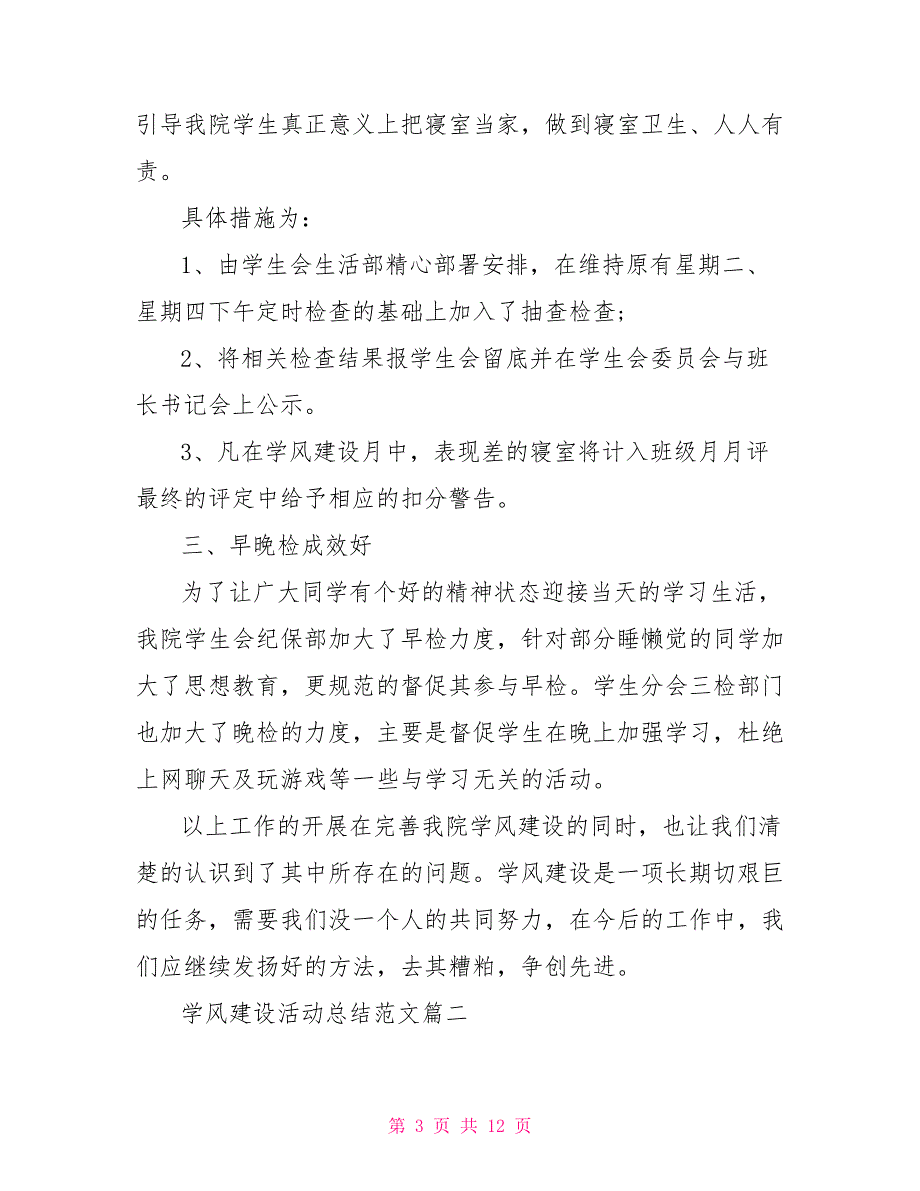 引导我院学生真正意义上把寝室当家，做到寝室卫生、人人有
责。
具体措施为：
1、由学生会生活部精心部署安排，在维持原有星期二、
星期四下午定时检查的基础上加入了抽查检查;
2、将相关检查结果报学生会留底并在学生会委员会与班
长书记会上公示。
3、凡在学风建设月中，表现差的寝室将计入班级月月评
最终的评定中给予相应的扣分警告。
三、早晚检成效好
为了让广大同学有个好的精神状态迎接当天的学习生活，
我院学生会纪保部加大了早检力度，针对部分睡懒觉的同学加
大了思想教育，更规范的督促其参与早检。学生分会三检部门
也加大了晚检的力度，主要是督促学生在晚上加强学习，杜绝
上网聊天及玩游戏等一些与学习无关的活动。
以上工作的开展在完善我院学风建设的同时，也让我们清
楚的认识到了其中所存在的问题。学风建设是一项长期切艰巨
的任务，需要我们没一个人的共同努力，在今后的工作中，我
们应继续发扬好的方法，去其糟粕，争创先进。
学风建设活动总结范文篇二
第 3 页 共 12 页